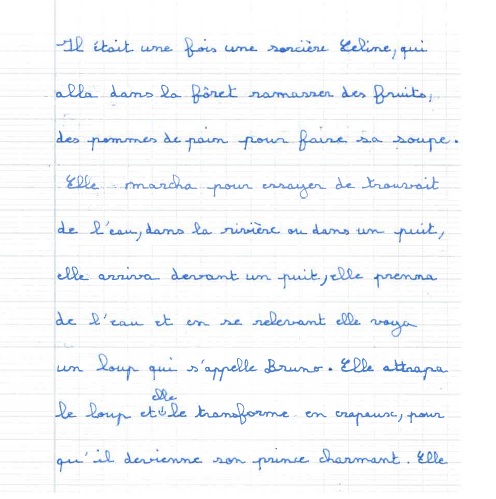 Il était une fois une sorcière Celine, qui
alla dans la fôret ramasser des fruits,
des pommes de pain pour faire sa soupe.
Elle marcha pour essayer de trouvait
de l'eau, dans la rivière ou dans un puit,
elle arriva devant un puit, elle prenna
de l'eau et en se relevant elle voya
un loup qui s'appelle Bruno. Elle attrapa
le loup et elle le transforme en crapeux, pour
qu'il devienne son prince charmant. Elle